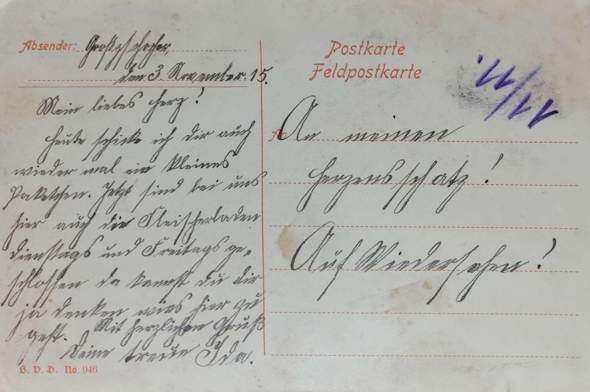 Absender: Großzschocher,
den 3. November. 15.
Mein liebes Herz!
Heute schicke ich dir auch
wieder mal ein kleines
Paketchen. Jetzt sind bei uns
hier auch die Fleischerladen
Dienstags und Freitags ge-
schlossen da kannst du dir
ja denken wies hier zu
geht. Mit herzlichen Gruß
Deine treue Ida.
B. V. D. No. 946
Postkarte
Feldpostkarte
11/11.
An meinen
Herzensschatz!
Auf Wiedersehen!